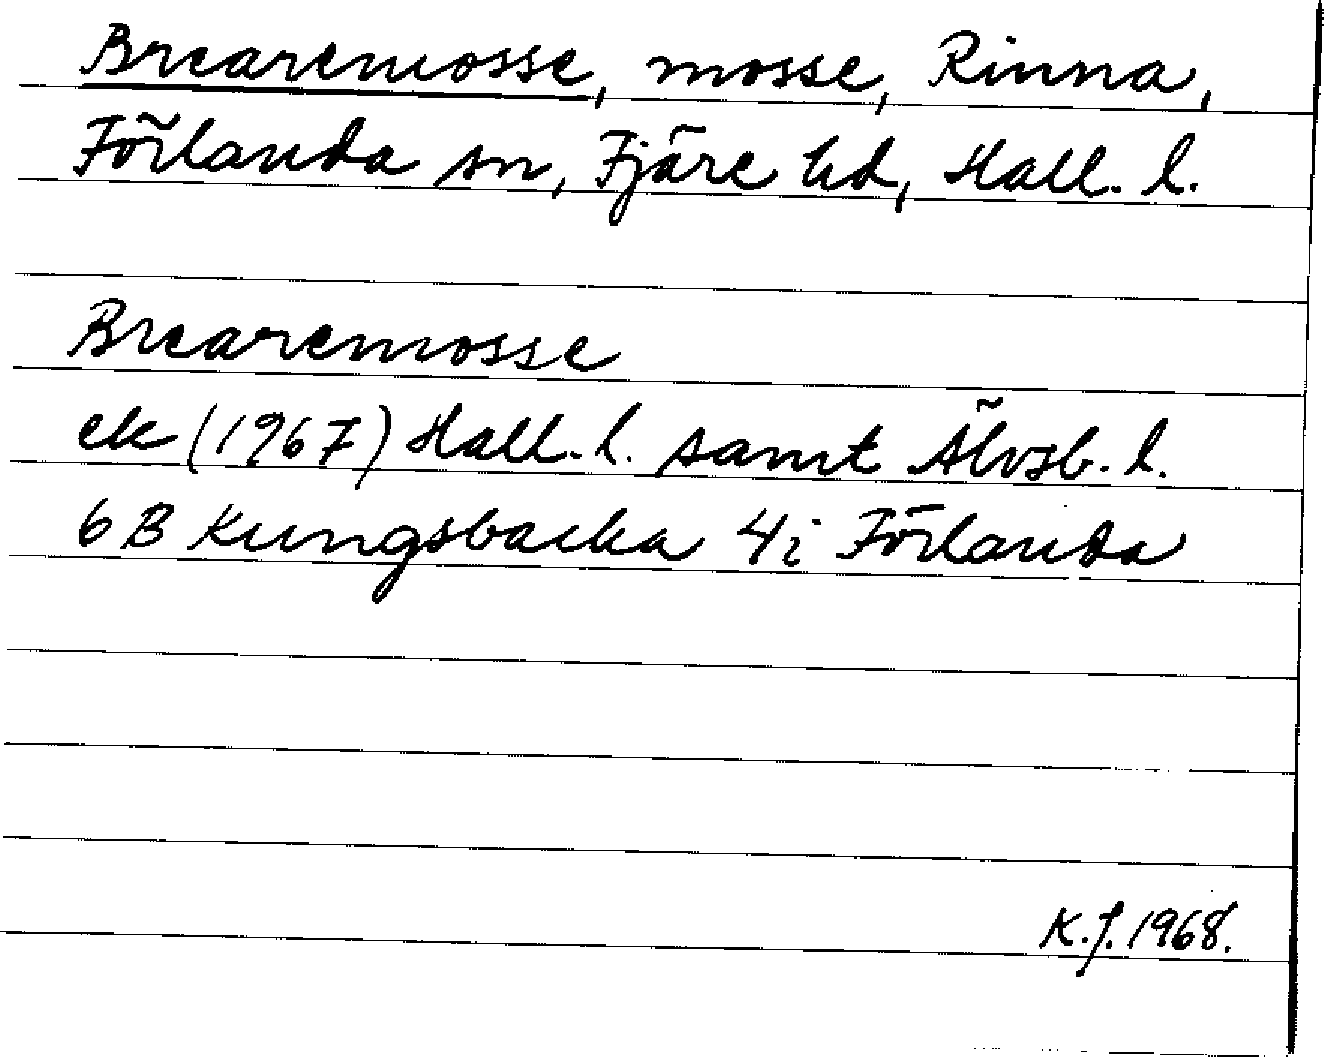 Brearemosse, mosse, Rinna,
Förlanda sn, Fjäre hd, Hall. l.
Brearemosse
ek (1967) Hall. l. samt Älvsb. l.
6B Kungsbacka 4i Förlanda
K.J. 1968.